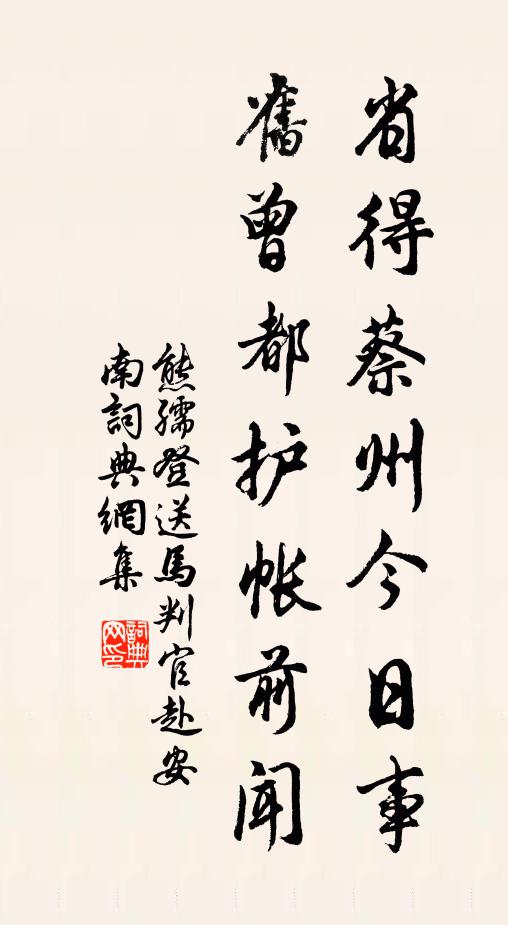 省得蔡州今日事
舊曾都护帐前闻
熊孺登送馬判官赴安
南詞典網集
詞典网印